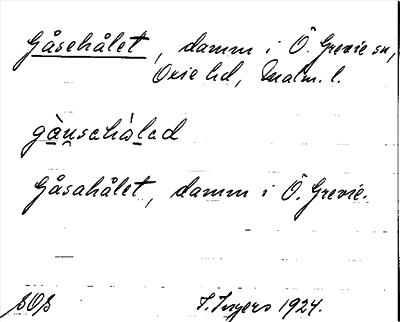 Gåsehålet, damm i Ö. Grevie sn,
Oxie hd, Malm. l.
gàu̯sahȧ̀led
Gåsahålet, damm i Ö. Grevie.
SOS I. Ingers 1924.